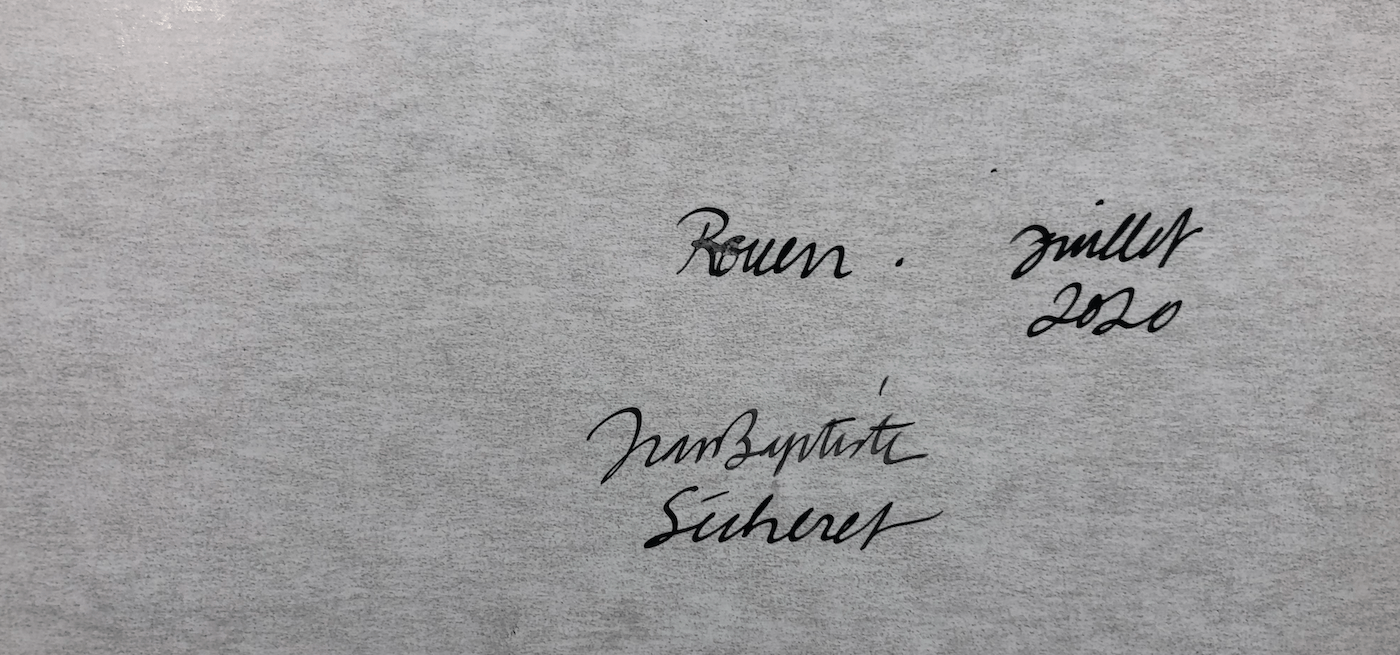 Rouen . juillet
2020
Jean Baptiste
Sécheret